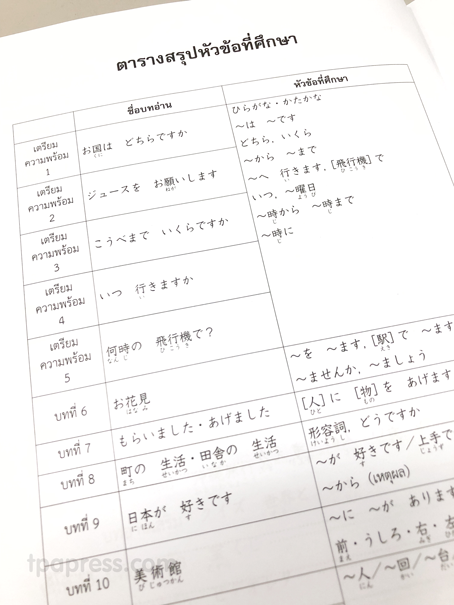 ตารางสรุปหัวข้อที่ศึกษา
ชื่อบทอ่าน
หัวข้อที่ศึกษา
เตรียม
ความพร้อม
1
お国は どちらですか
くに
ひらがな・かたかな
～は ～です
どちら, いくら
เตรียม
ความพร้อม
2
ジュースを お願いします
ねが
～から ～まで
～へ 行きます, [飛行機]で
い ひ こう き
เตรียม
ความพร้อม
3
こうべまで いくらですか
いつ, ～曜日
よう び
～時から ～時まで
じ じ
～時に
じ
เตรียม
ความพร้อม
4
いつ 行きますか
い
เตรียม
ความพร้อม
5
何時の 飛行機で？
なん じ ひ こう き
บทที่ 6
お花見
はな み
～を ～ます, [駅]で ～ます
えき
～ませんか, ～ましょう
บทที่ 7
もらいました・あげました
[人]に [物]を あげます
ひと もの
บทที่ 8
町の 生活・田舎の 生活
まち せいかつ いなか せいかつ
形容詞, どうですか
けいよう し
บทที่ 9
日本が 好きです
に ほん す
～が 好きです/上手で
す じょうず
～から (เหตุผล)
บทที่ 10
美術館
び じゅつかん
～に ～が あります
前・うしろ・右・左
まえ みぎ
～人/～回/～台
にん かい だい
tpapress.com